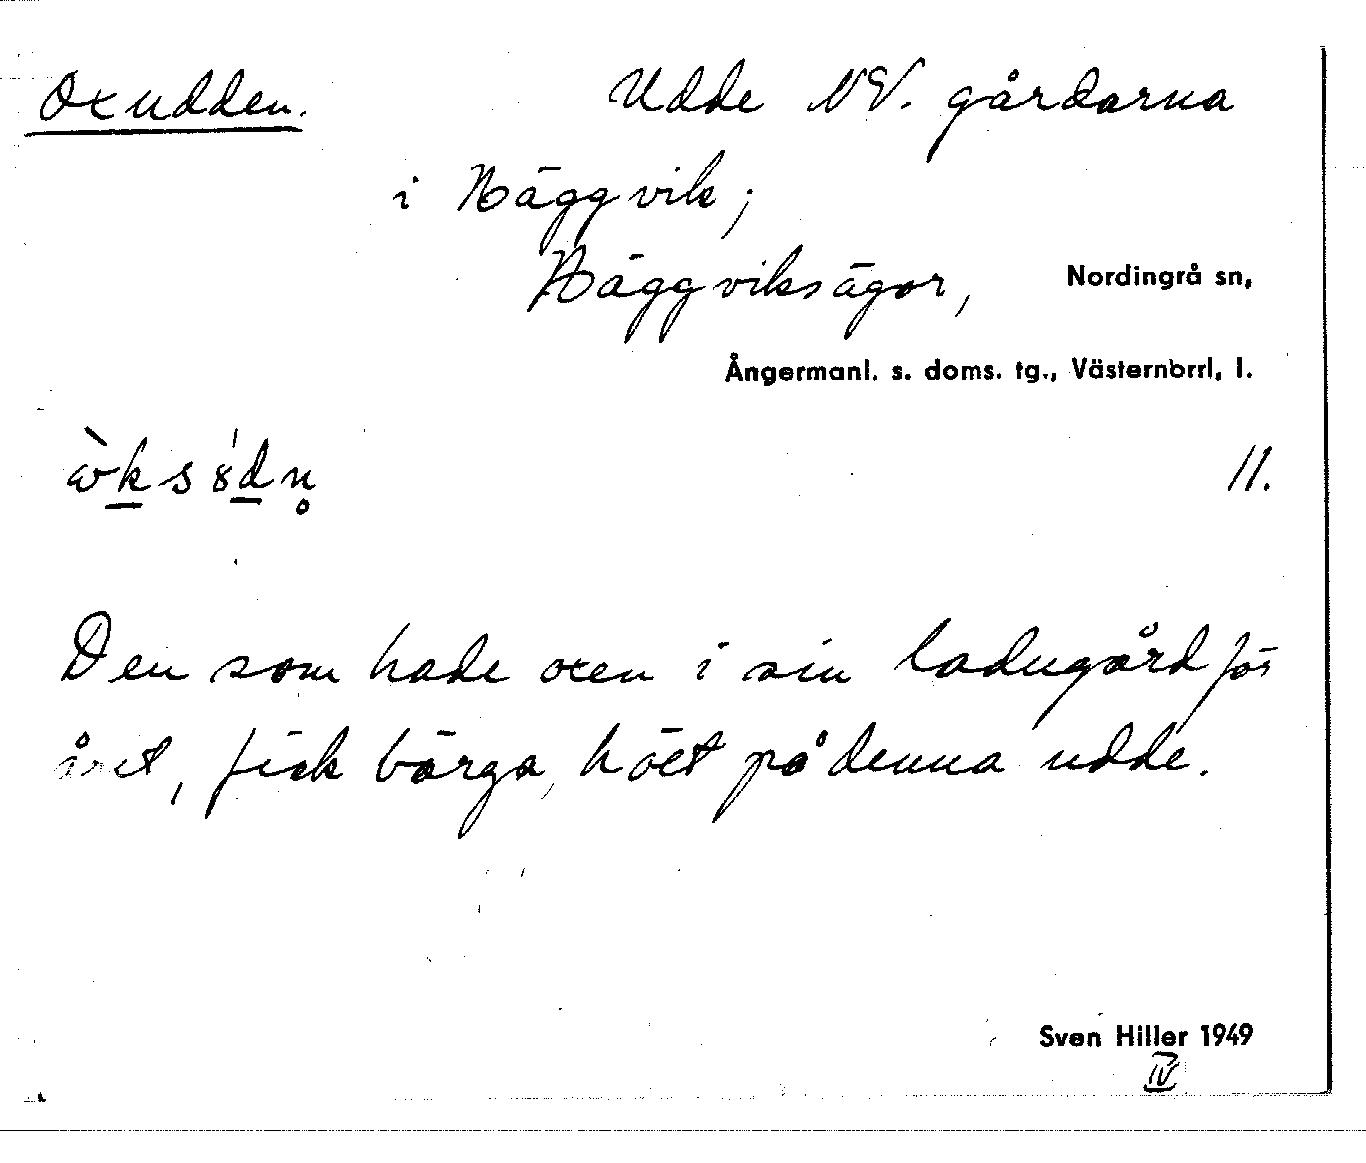 Oxudden. Udde NV. gårdarna
i Häggvik;
Häggviksägor, Nordingrå sn,
Ångermanl. s. doms. tg., Västernbrrl, l.
11.
Den som hade oxen i sin ladugård för
året, fick bärga höet på denna udde.
Sven Hiller 1949
IV